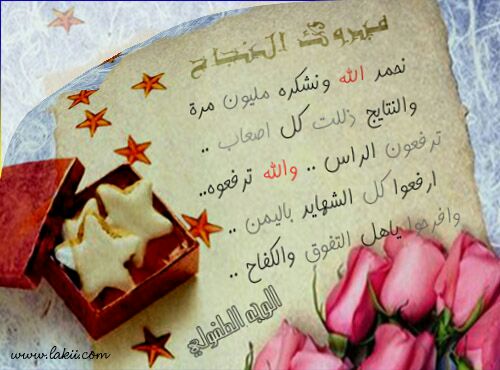 مبروك النجاح
نحمد الله ونشكره مليون مرة
والنتايج ذللت كل اصعاب ..
ترفعون الراس .. والله ترفعوه..
ارفعوا كل الشهايد باليمن ..
وافرحوا ياهل التفوق والكفاح ..
الوجه الطفولي
www.lakii.com